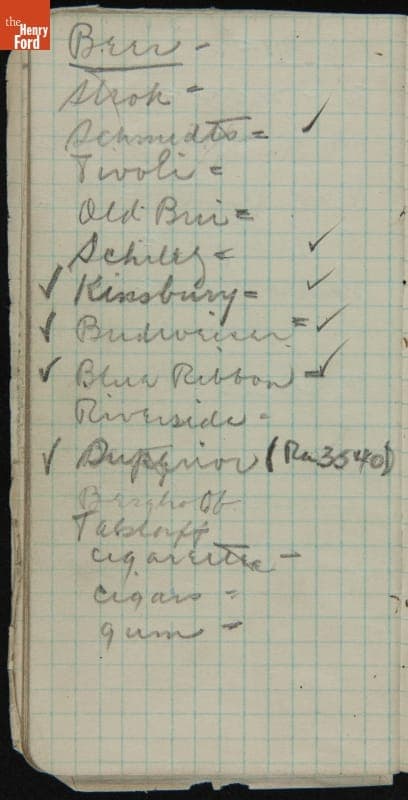 the
Henry
Ford
Beer -
Stroh =
Schmidts = ✓
Tivoli =
Old Bru =
Schiletz = ✓
✓ Kinsbury = ✓
✓ Budweiser = ✓
✓ Blue Ribbon = ✓
Riverside -
✓ Superior (Ra 3540)
Berghoff
Falstaff
cigarettes -
cigars =
gum =